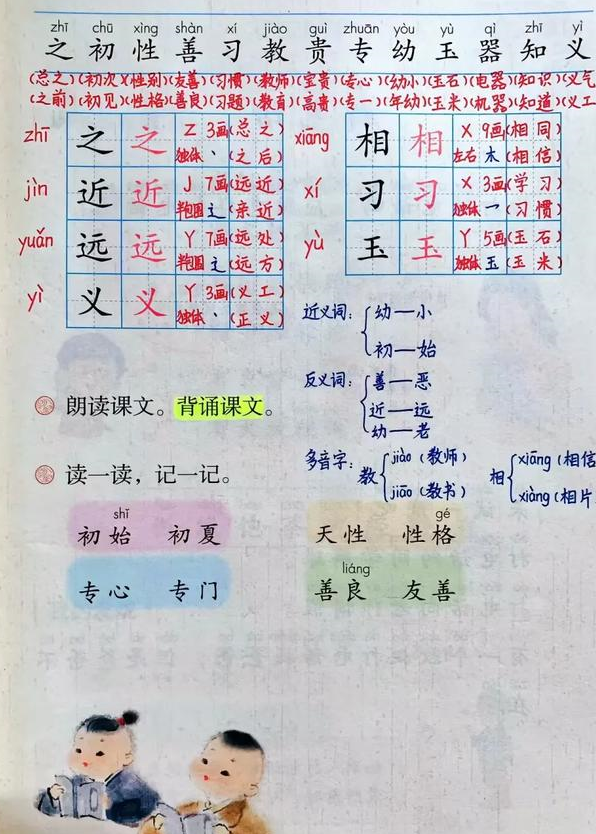 zhī chū xìng shàn xí jiào guì zhuān yòu yù qì zhī yì
之 初 性 善 习 教 贵 专 幼 玉 器 知 义
(总之)(初次)(性别)(友善)(习惯)(教师)(宝贵)(专心)(幼小)(玉石)(电器)(知识)(义气
(之前)(初见)(性格)(善良)(习题)(教育)(高贵)(专一)(年幼)(玉米)(机器)(知道)(义工
zhī 之 之 Z 3画(总之)
独体 丶 (之后)
xiāng 相 相 X 9画(相同)
左右 木 (相信)
jìn 近 近 J 7画(远近)
半包围 辶 (亲近)
xí 习 习 X 3画(学习)
独体 一 (习惯)
yuǎn 远 远 Y 7画(远处)
半包围 辶 (远方)
yù 玉 玉 Y 5画(玉石)
独体 玉 (玉米)
yì 义 义 Y 3画(义工)
独体 丶 (正义)
近义词: 幼—小
初—始
反义词: 善—恶
近—远
幼—老
朗读课文。背诵课文。
多音字: 教 jiào (教师)
jiāo (教书)
相 xiāng (相信
xiàng (相片
读一读,记一记。
shǐ
初始 初夏
gé
天性 性格
专心 专门
liáng
善良 友善